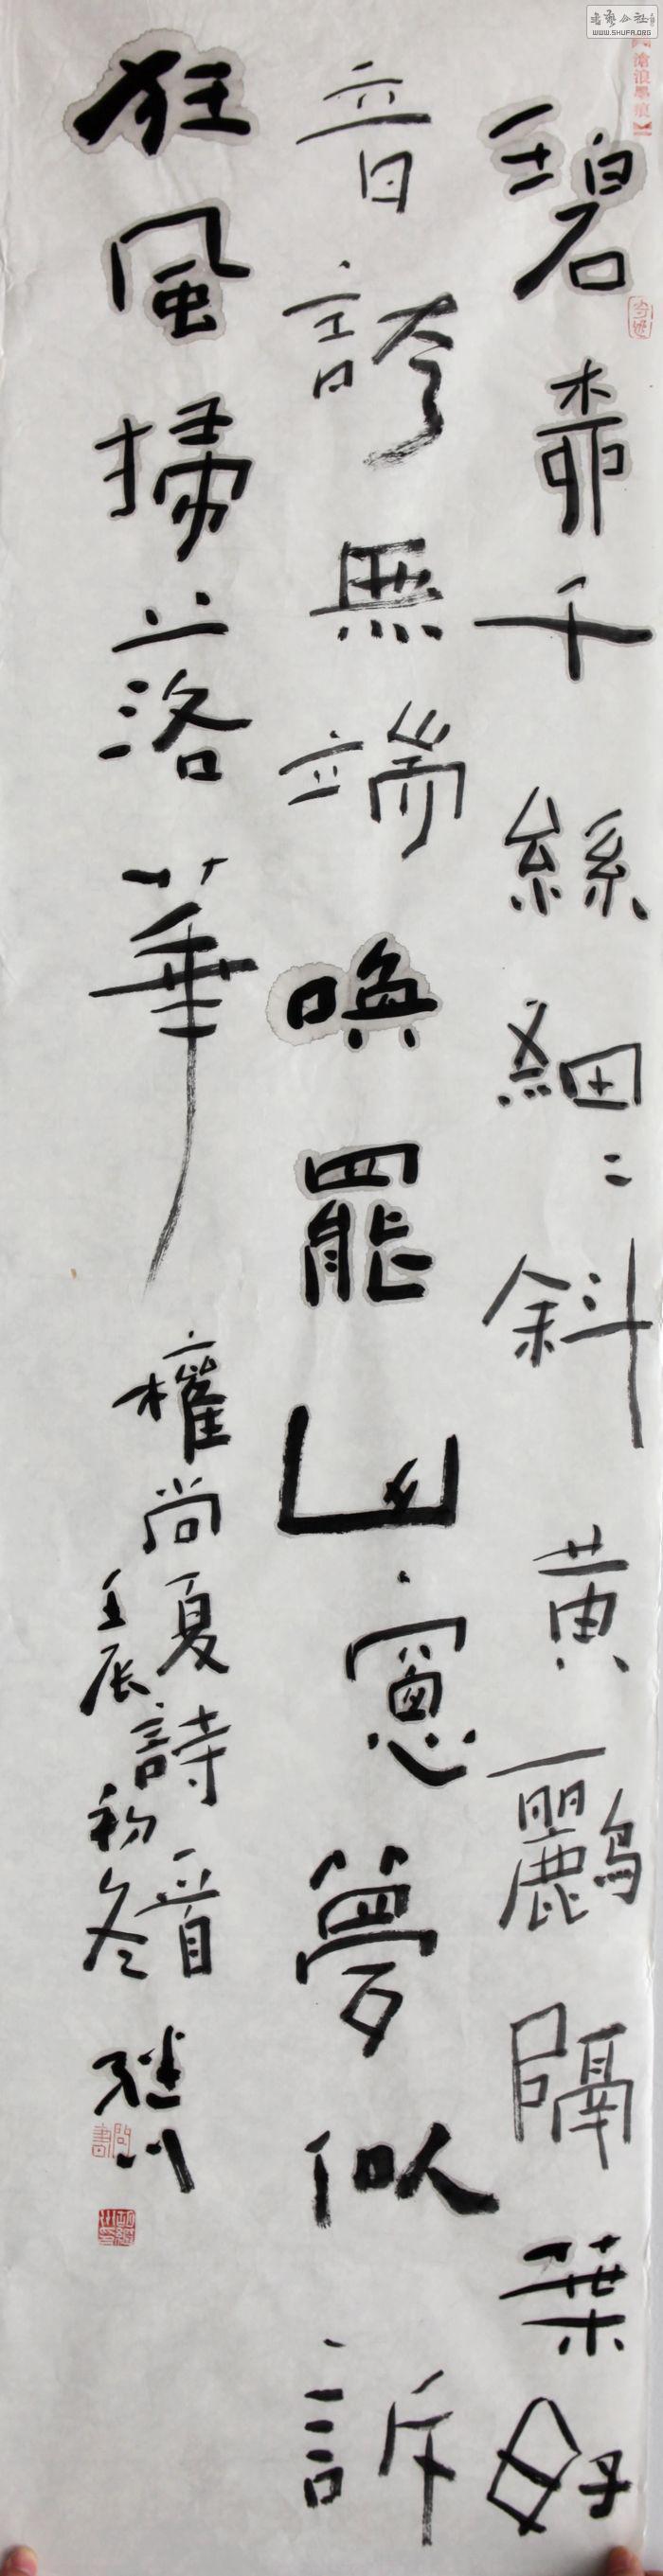 碧柳千絲細〻斜黃鸝隔葉好
音誇無端喚罷山窻夢似訴
狂風掃落華 權尚夏詩一首
壬辰初冬 继川
滄浪墨痕
书艺公社
WWW.SHUFA.ORG